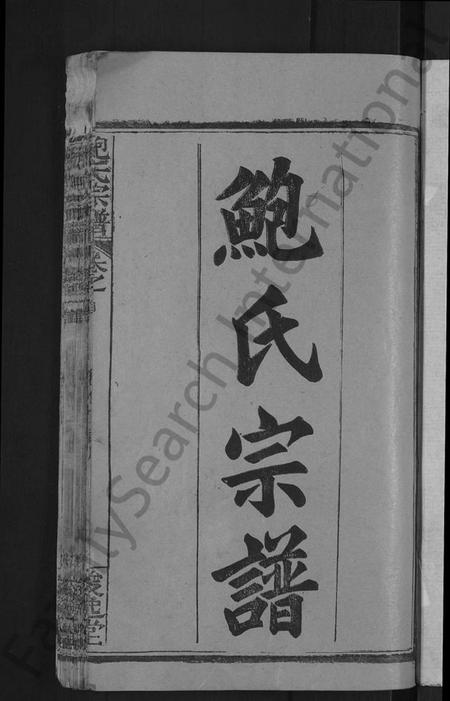 鮑氏宗譜
鮑氏宗譜
卷之一
堂
FamilySearch International